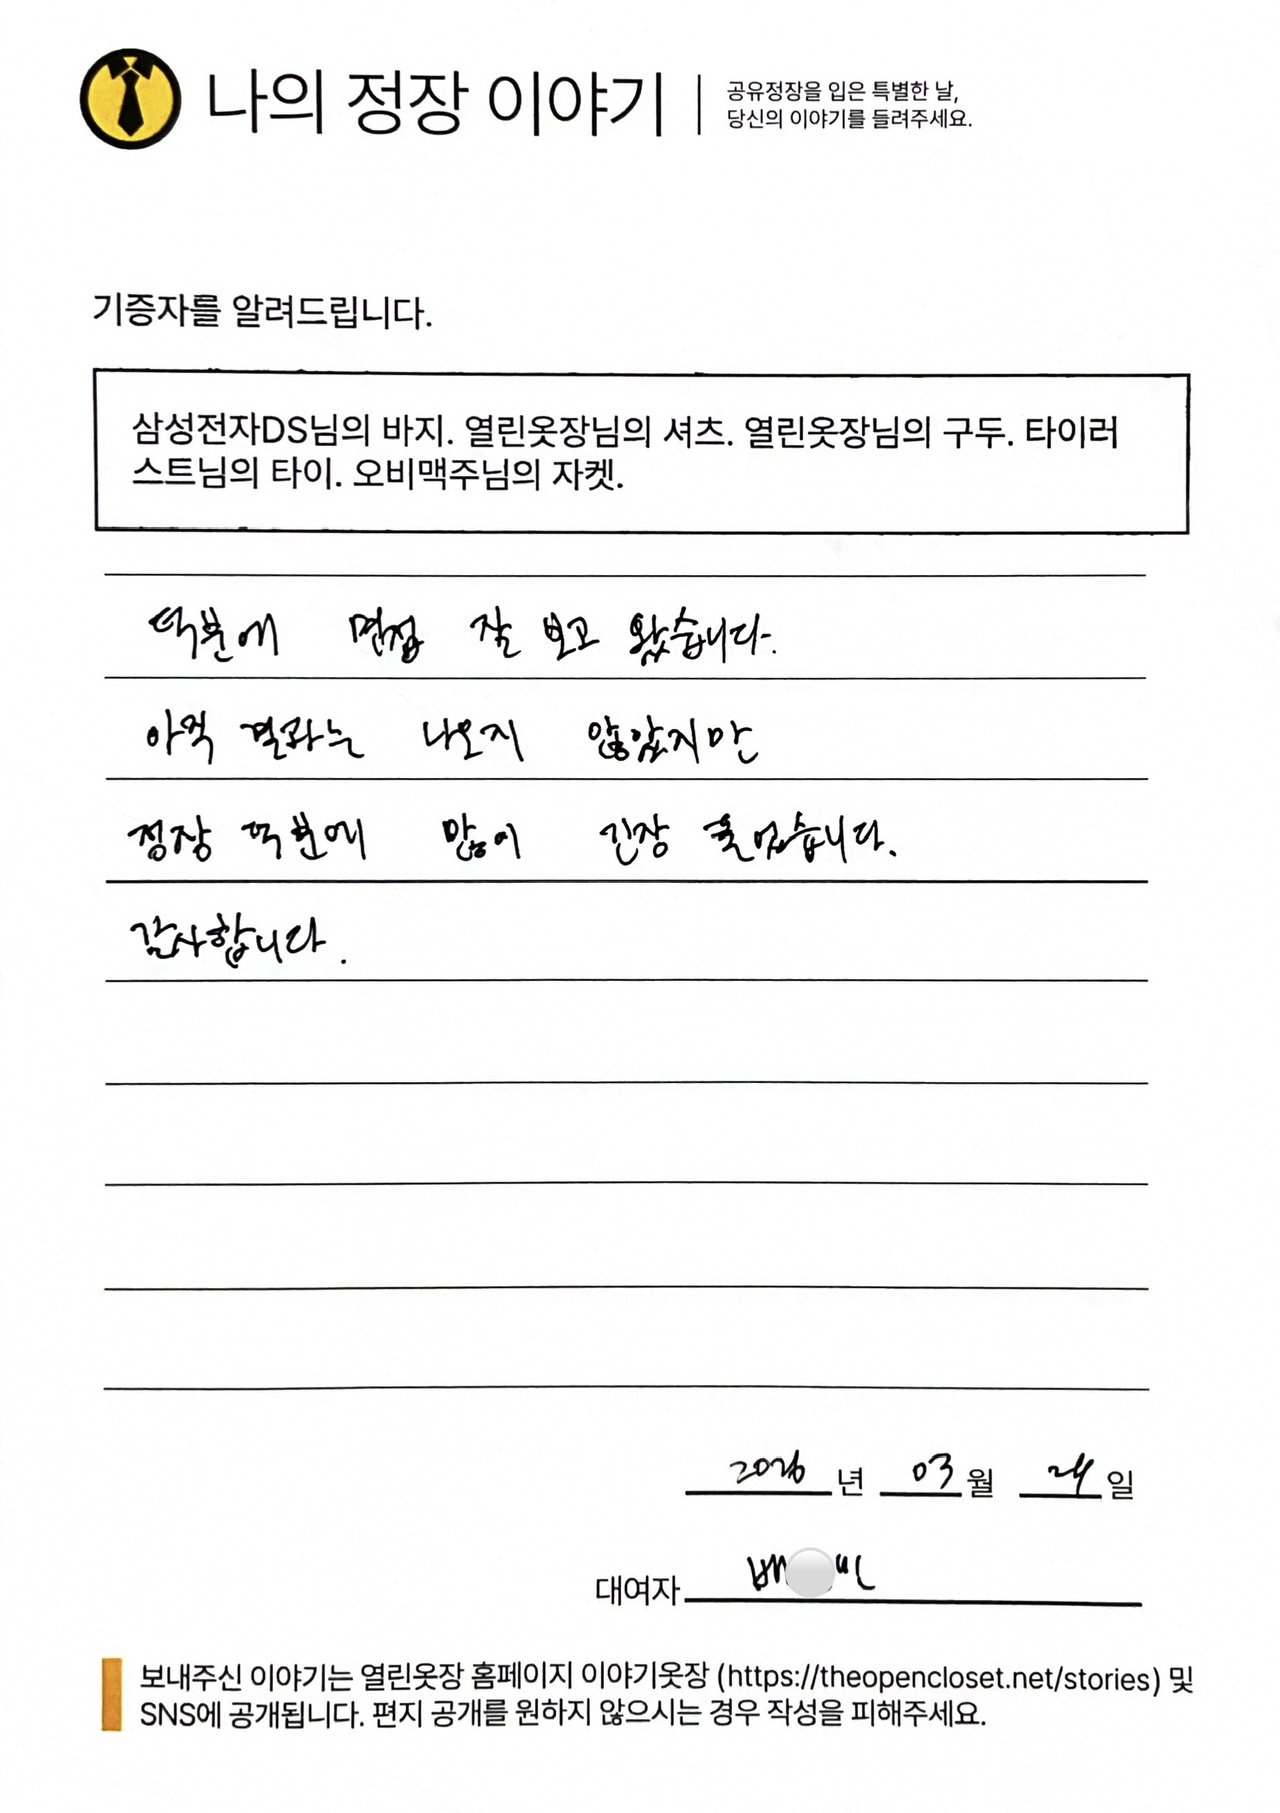 나의 정장 이야기
공유정장을 입은 특별한 날,
당신의 이야기를 들려주세요.
기증자를 알려드립니다.
삼성전자DS님의 바지. 열린옷장님의 셔츠. 열린옷장님의 구두. 타이러
스트님의 타이. 오비맥주님의 자켓.
덕분에 면접 잘 보고 왔습니다.
아직 결과는 나오지 않았지만
정장 덕분에 많이 긴장 풀었습니다.
감사합니다.
2026 년 03 월 24 일
대여자 배 빈
보내주신 이야기는 열린옷장 홈페이지 이야기옷장 (https://theopencloset.net/stories) 및
SNS에 공개됩니다. 편지 공개를 원하지 않으시는 경우 작성을 피해주세요.